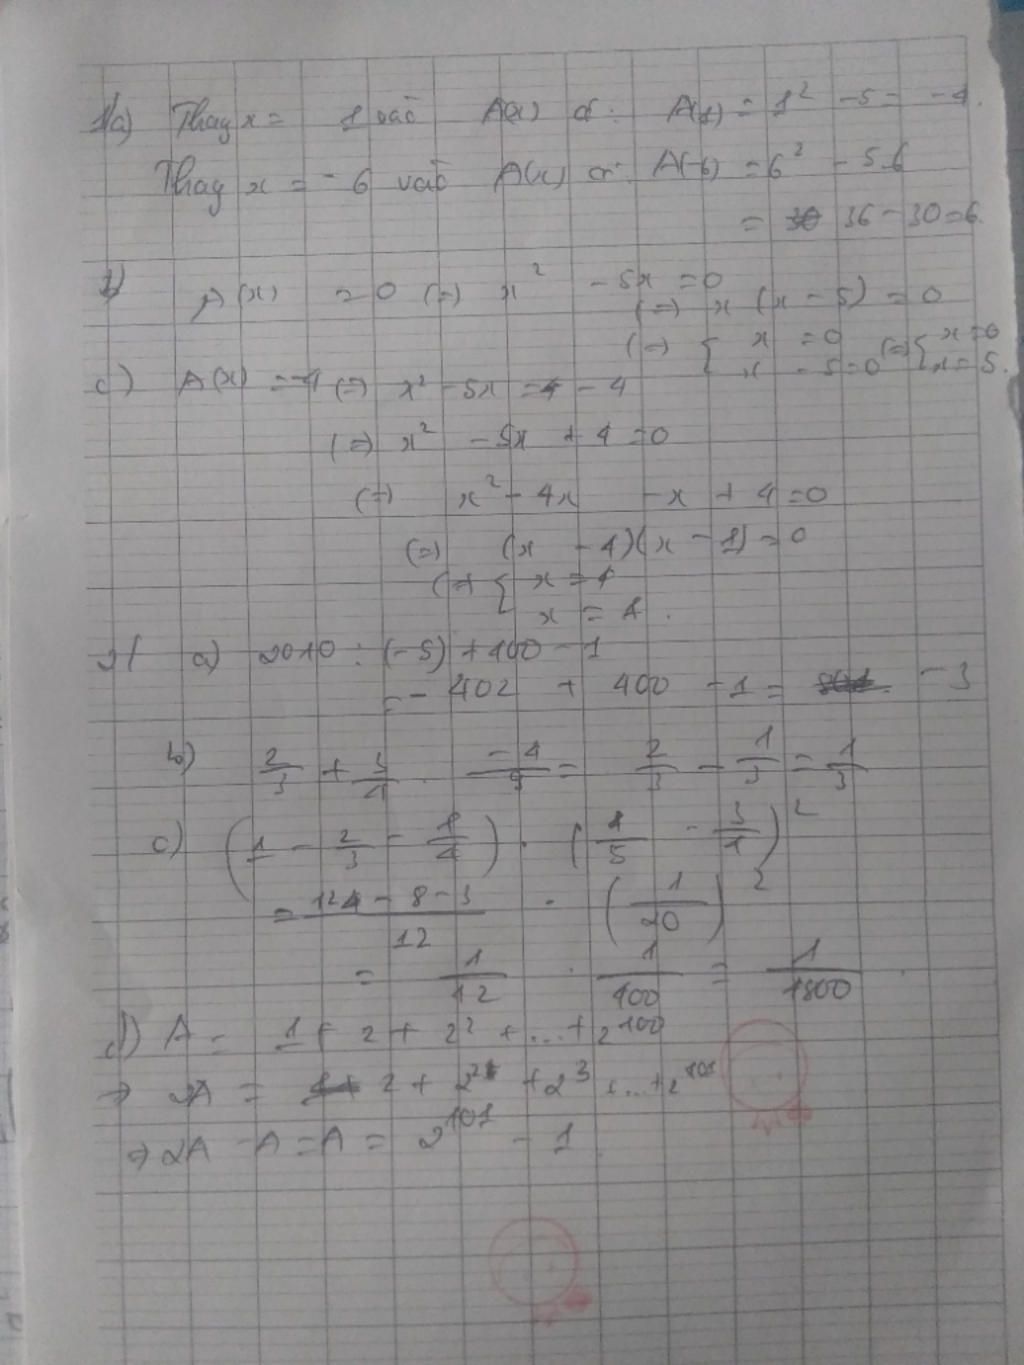 1/a) Thay x = 1 vào A(x) có: A(1) = 1² - 5 = -4.
Thay x = -6 vào A(x) có: A(-6) = 6² - 5.6
= 36 - 30 = 6.
b) A(x) = 0 (=) x² - 5x = 0
(=) x (x - 5) = 0
(=) { x = 0 (=) { x = 0
x - 5 = 0 x = 5.
c) A(x) = -4 (=) x² - 5x = - 4
(=) x² - 5x + 4 = 0
(=) x² - 4x - x + 4 = 0
(=) (x - 4)(x - 1) = 0
(=) { x = 1
x = 4.
2/ a) 2010 : (-5) + 400 - 1
= - 402 + 400 - 1 = - 3
b) 2/3 + 3/4 . -4/9 = 2/3 - 1/3 = 1/3
c) (1 - 2/3 - 1/4) . (4/5 - 3/4)²
= 12 - 8 - 3 / 12 . (1/20)²
= 1/12 . 1/400 = 1/4800.
d) A = 1 + 2 + 2² + ... + 2¹⁰⁰
=> 2A = 2 + 2² + 2³ + ... + 2¹⁰¹
=> 2A - A = A = 2¹⁰¹ - 1